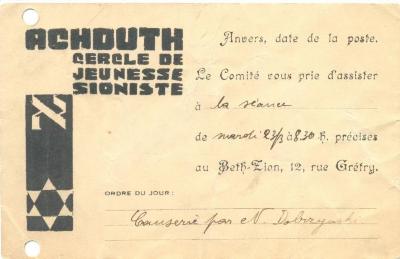 ACHDUTH
CERCLE DE
JEUNESSE
SIONISTE
א
Anvers, date de la poste.
Le Comité vous prie d'assister
à la séance
de mardi 23/3 à 8.30 h. précises
au Beth-Zion, 12, rue Grétry.
ORDRE DU JOUR :
Causerie par N.